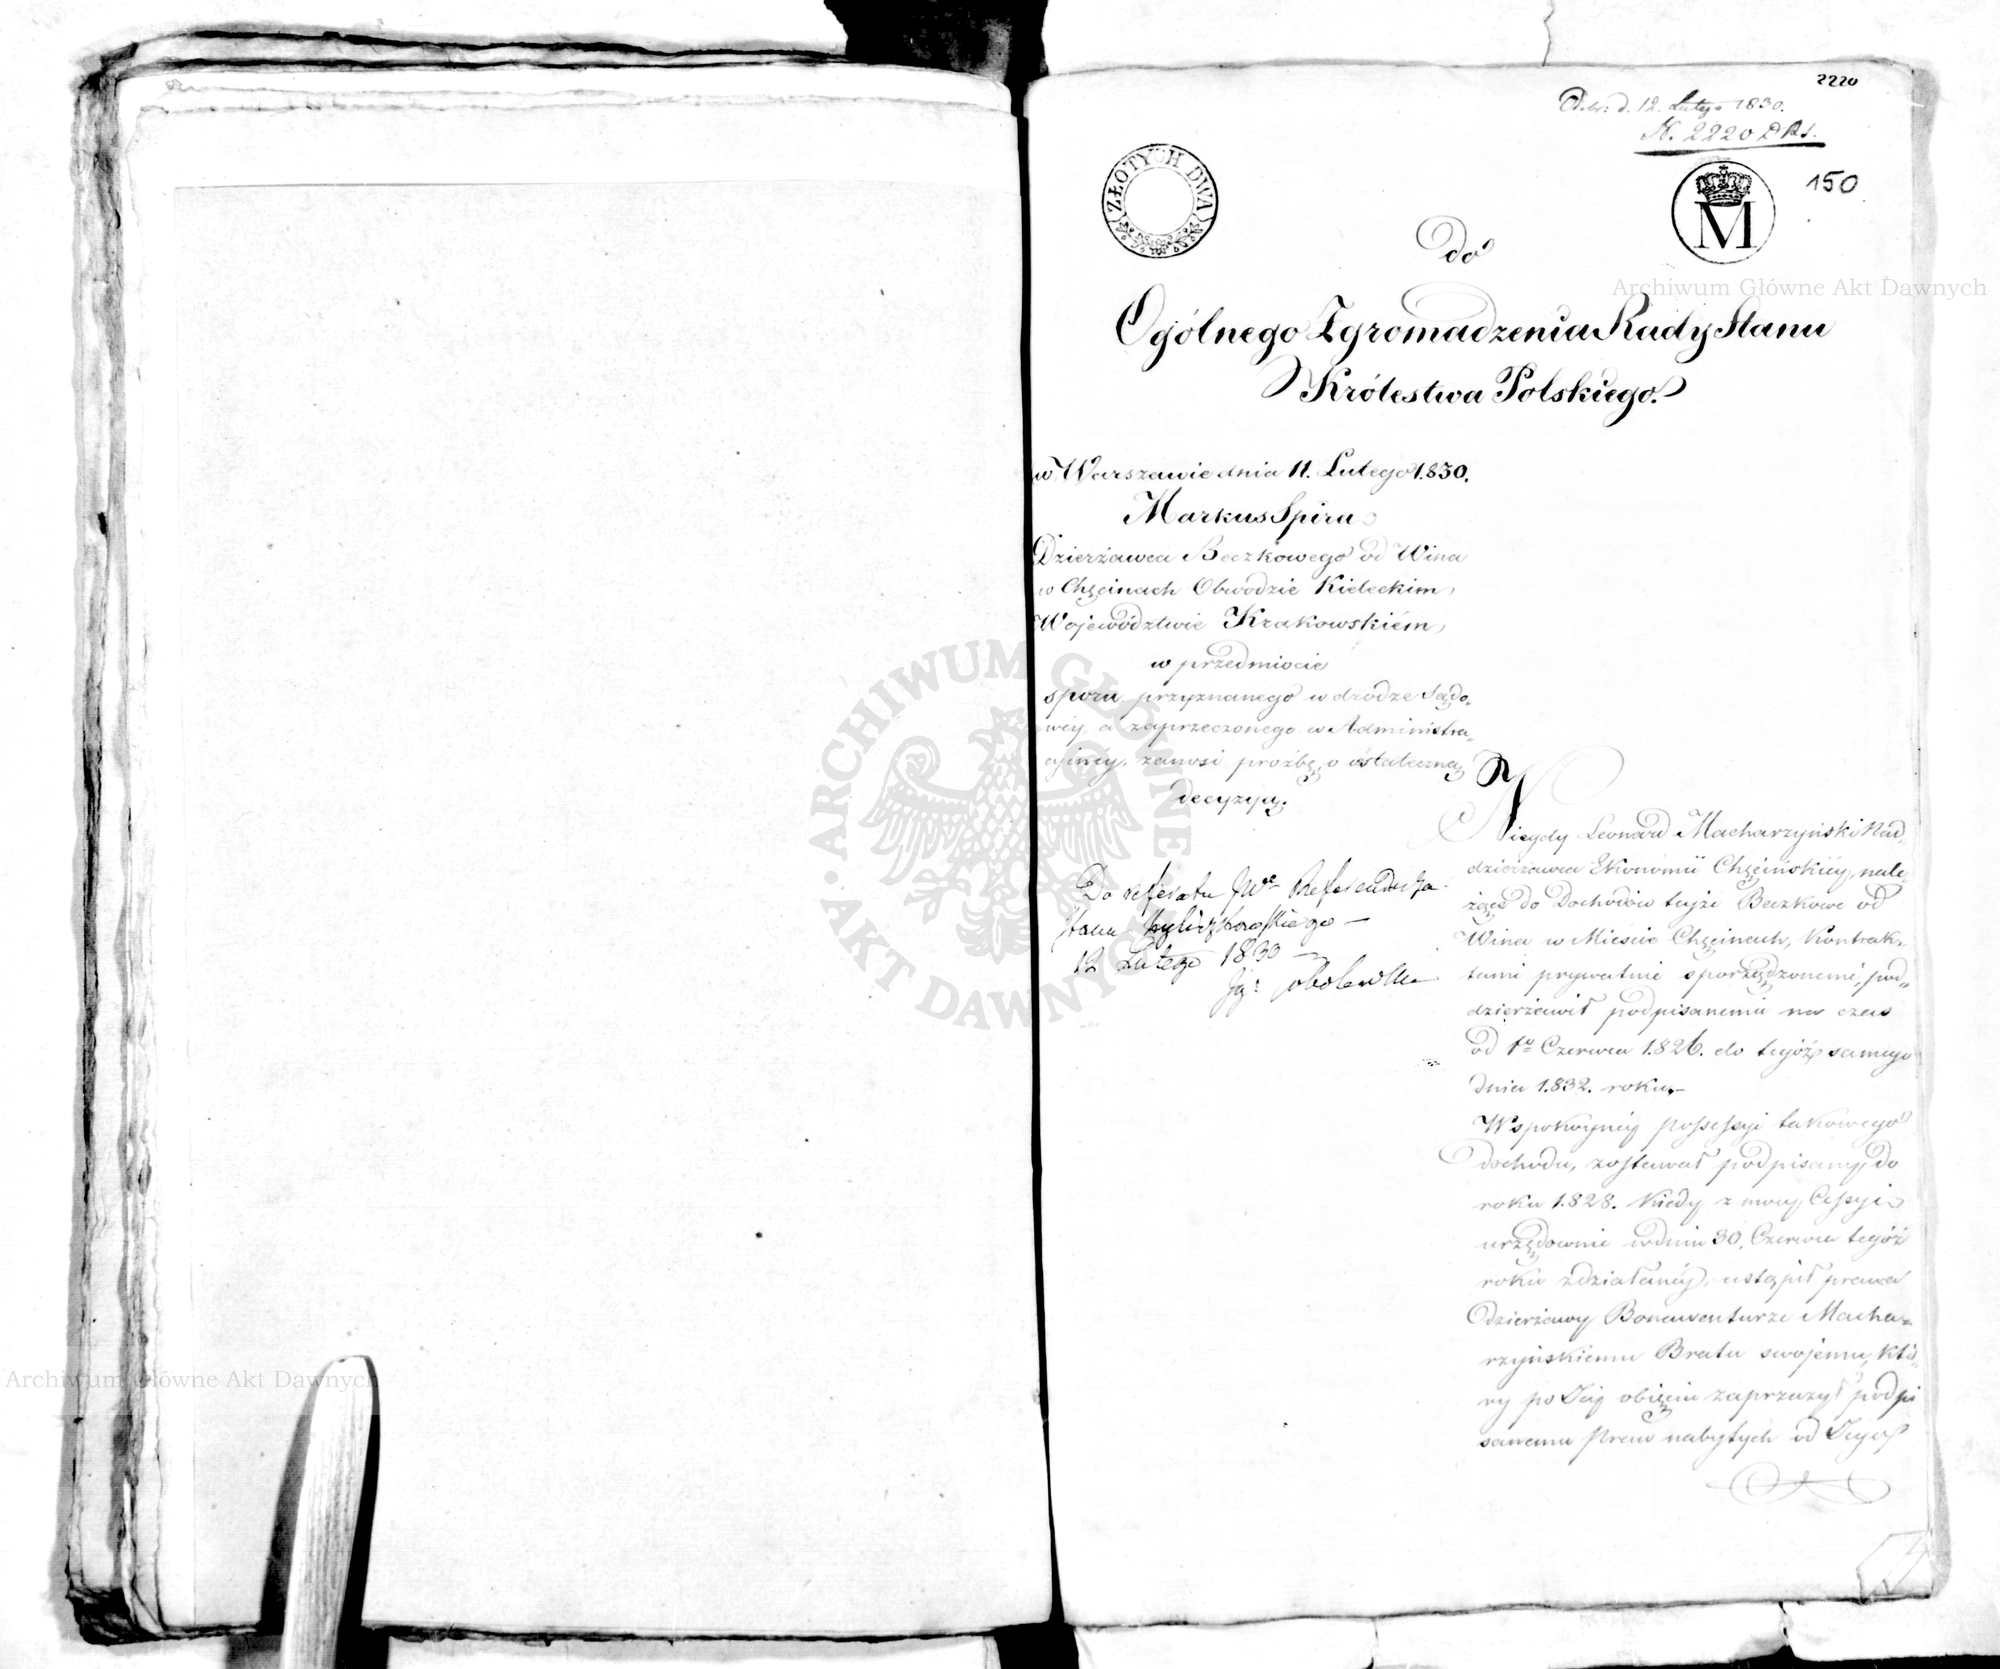 2220
Odebr: d. 12. Lutego 1830.
N. 2220 D R S.
ZŁOTYCH DWA
M
150
Do
Ogólnego Zgromadzenia Rady Stanu
Królestwa Polskiego.
w Warszawie dnia 11. Lutego 1.830.
Markus Spira
Dzierżawca Beczkowego od Wina
w Chęcinach Obwodzie Kieleckim,
Województwie Krakowskiém,
w przedmiocie
sporu przyznanego w drodze Sądo,,
wéy, a zaprzeczonego w Administra,,
cyinéy, zanosi prożbę o ostateczną
decyzyą.
Do referatu JW Referendarza
Stanu
12 Lutego 1830
Ig: Sobolewski
Niegdy Leonard Macharzyński Nad,,
dzierżawca Ekonomii Chęcińskiéy, nale,,
żące do Dochodów tejże Beczkowe od
Wina w Mieście Chęcinach, Kontrak,,
tami prywatnie sporządzonemi, pod,,
dzierżawił podpisanemu na czas
od 1o Czerwca 1.826. do tegóż samego
dnia 1.832. roku.–
W spokoynéy possessyi takowego
dochodu, zostawał podpisany, do
roku 1.828. Kiedy z mocy Cessyi
urzędownie w dniu 30. Czerwca tegóż
roku zdziałanéy, ustąpił prawa
dzierżawy Bonawenturze Macha,,
rzyńskiemu Bratu swojemu, któ,,
ry po Jéy obięciu zaprzeczył podpi
sanemu Praw nabytych od Jego
Archiwum Główne Akt Dawnych
Archiwum Główne Akt Dawnych
ARCHIWUM GŁÓWNE AKT DAWNYCH